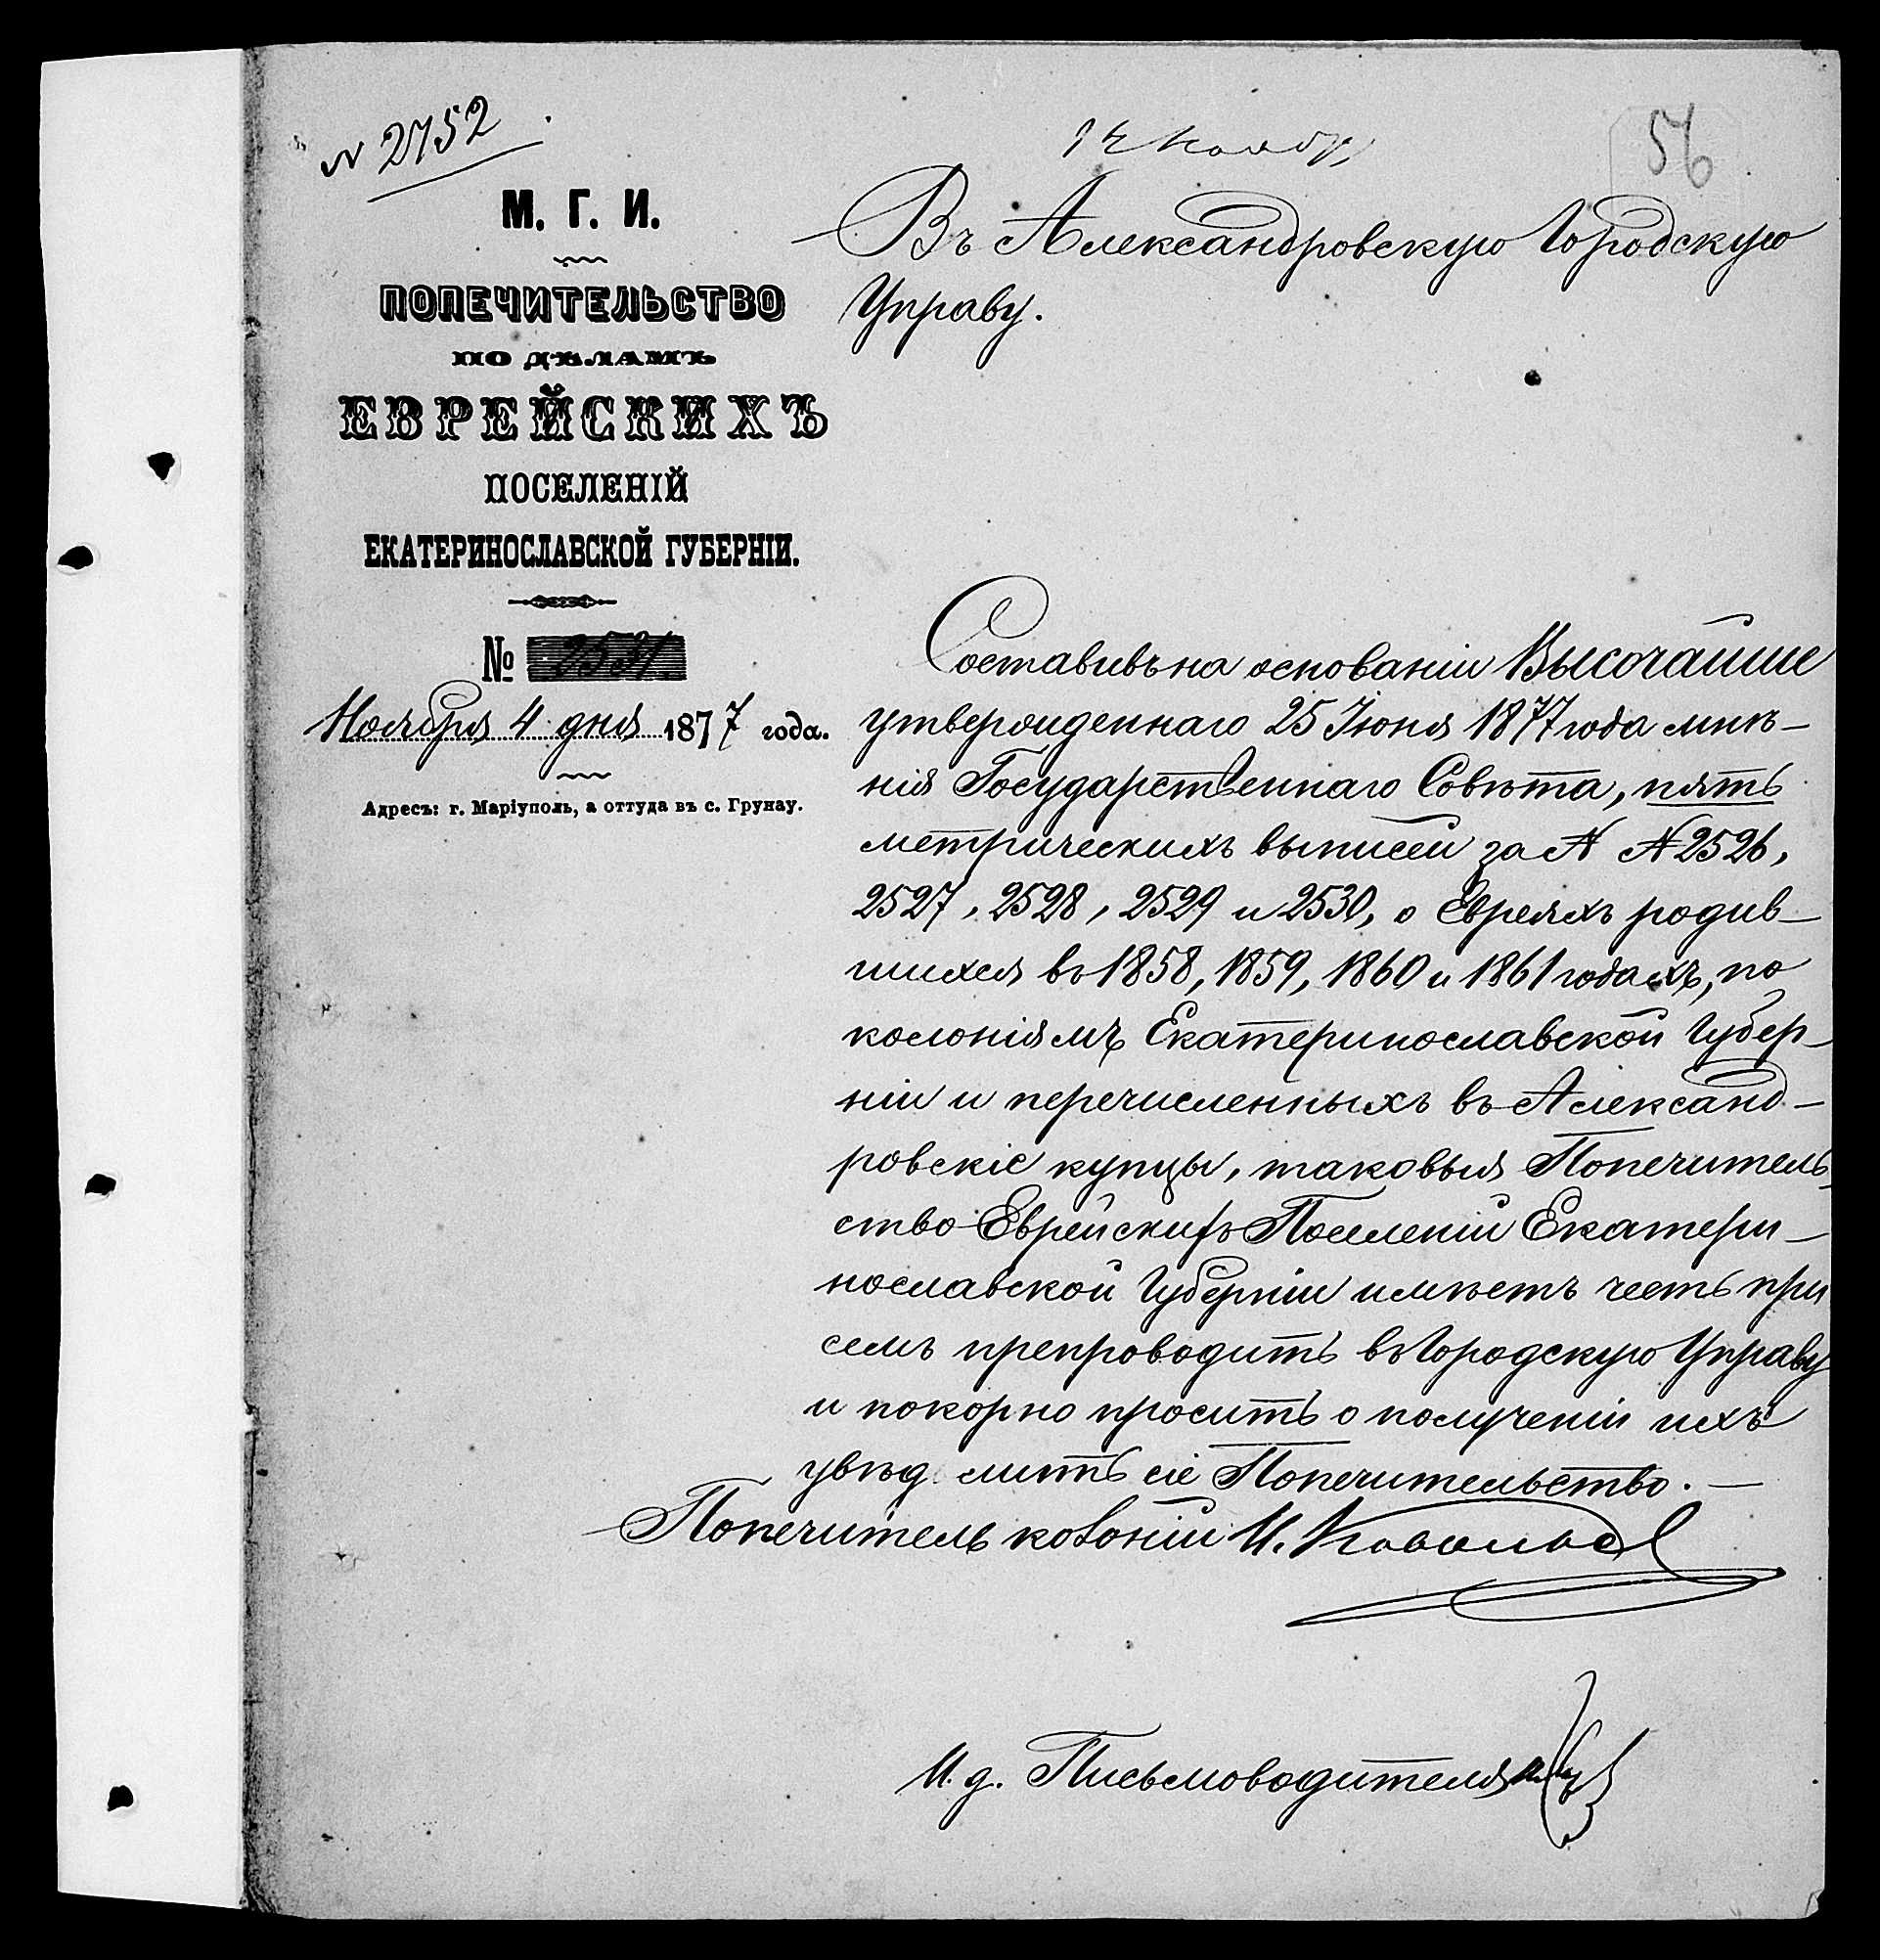 N 2752
12 Ноябр
56
М. Г. И.
ПОПЕЧИТЕЛЬСТВО
ПО ДѢЛАМЪ
ЕВРЕЙСКИХЪ
ПОСЕЛЕНІЙ
ЕКАТЕРИНОСЛАВСКОЙ ГУБЕРНІИ.
№ 2531
Ноября 4 дня 1877 года.
Адресъ: г. Маріуполь, а оттуда въ с. Грунау.
Въ Александровскую Городскую
Управу.
Составивъ на основаніи Высочайше
утвержденнаго 25 Іюня 1877 года мнѣ-
нія Государственнаго Совѣта, пять
метрическихъ выписей за N N 2526,
2527, 2528, 2529 и 2530, о Евреяхъ родив-
шихся въ 1858, 1859, 1860 и 1861 годахъ, по
колоніямъ Екатеринославской Губер-
ніи и перечисленныхъ въ Александ-
ровскіе купцы, таковыя Попечитель-
ство Еврейскихъ Поселеній Екатери-
нославской Губерніи имѣетъ честь при
семъ препроводить въ Городскую Управу
и покорно проситъ о полученіи ихъ
увѣд мить сіе Попечительство. —
Попечитель колоній И.
И. д. Письмоводителя